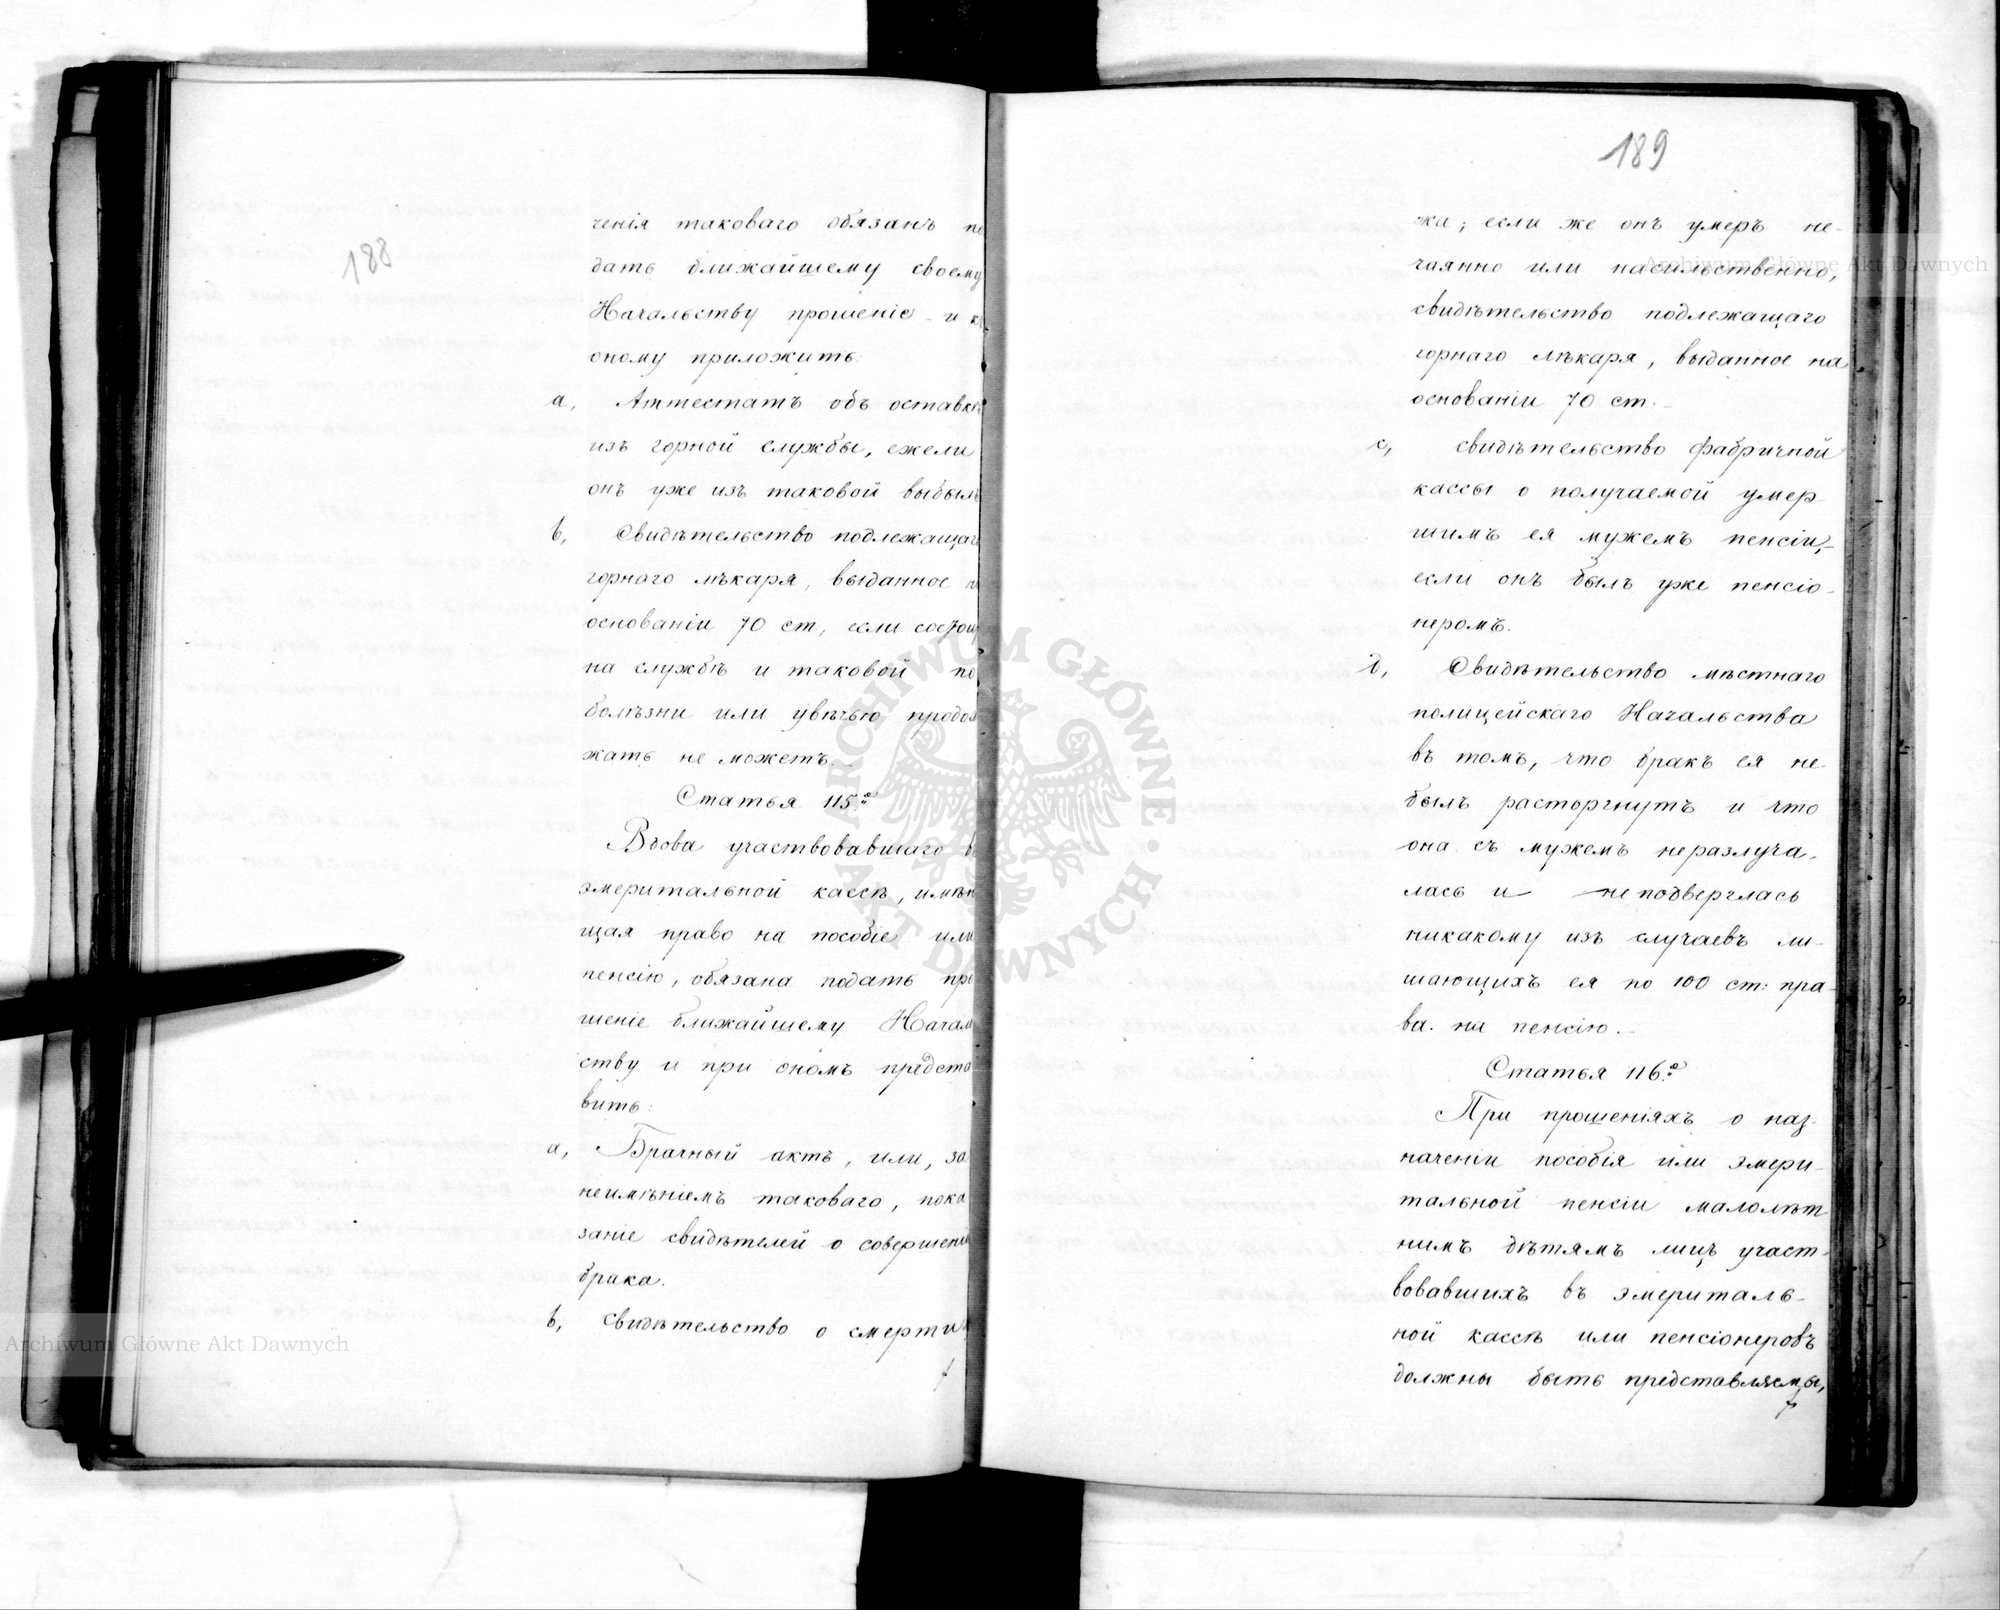 188
ченія таковаго обязанъ по
дать ближайшему своему
Начальству прошеніе и къ
оному приложить:
a, Аттестатъ объ оставкѣ
изъ горной службы, ежели
онъ уже изъ таковой выбылъ
b, Свидѣтельство подлежащаго
горнаго лѣкаря, выданное
основаніи 70 ст, если состоя
на службѣ и таковой по
болѣзни или увѣчью продол
жать не можетъ.
Статья 115.
Вдова участвовавшаго въ
эмеритальной кассѣ, имѣю
щая право на пособіе или
пенсію, обязана подать про
шеніе ближайшему Началь
ству и при ономъ предста
вить:
a, Брачный актъ, или, за
неимѣніемъ таковаго, пока
заніе свидѣтелей о совершеніи
брака.
b, свидѣтельство о смерти
189
жа; если же онъ умеръ не-
чаянно или насильственно,
свидѣтельство подлежащаго
горнаго лѣкаря, выданное на
основаніи 70 ст.
c, свидѣтельство фабричной
кассы о получаемой умер
шимъ ея мужемъ пенсіи,
если онъ былъ уже пенсіо-
неромъ.
d, Свидѣтельство мѣстнаго
полицейскаго Начальства
въ томъ, что бракъ ея не
былъ расторгнутъ и что
она съ мужемъ неразлуча-
лась и неподверглась
никакому изъ случаевъ ли-
шающихъ ея по 100 ст: пра-
ва на пенсію.
Статья 116.
При прошеніяхъ о наз-
наченіи пособія или эмери-
тальной пенсіи малолѣт
нимъ дѣтямъ лицъ участ-
вовавшихъ въ эмериталь-
ной кассѣ или пенсіонеровъ
должны быть представляемы,
Archiwum Główne Akt Dawnych
Archiwum Główne Akt Dawnych
ARCHIWUM GŁÓWNE AKT DAWNYCH